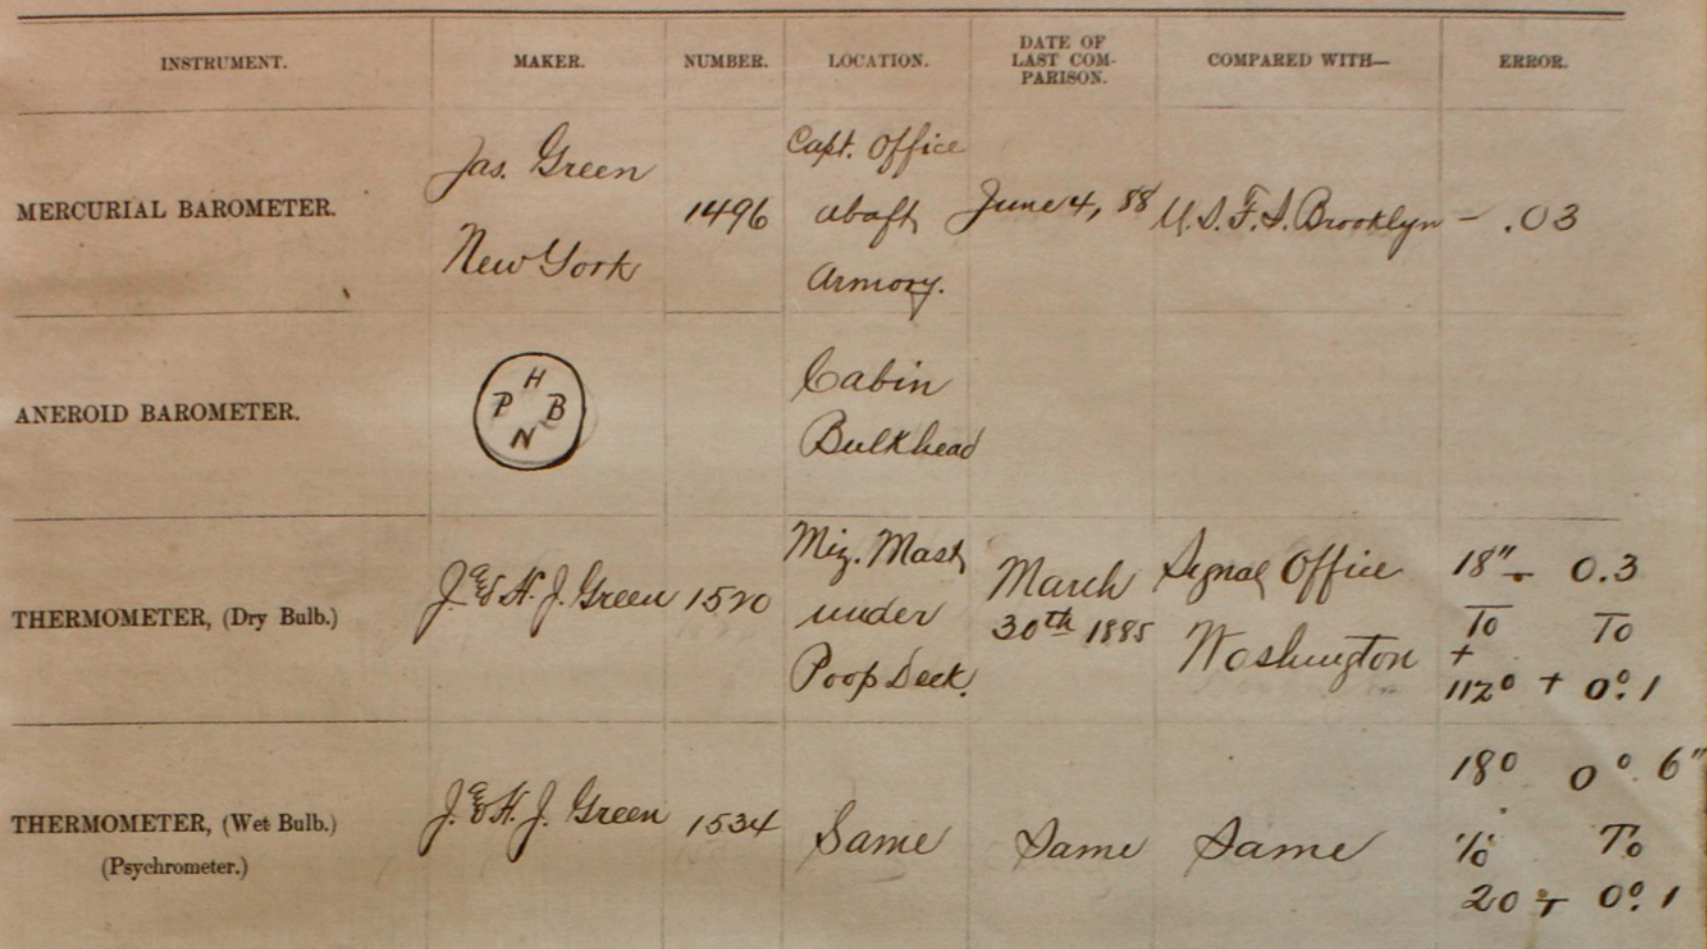 INSTRUMENT. MAKER. NUMBER. LOCATION. DATE OF LAST COM- PARISON. COMPARED WITH— ERROR.
MERCURIAL BAROMETER.
Jas. Green
New York
1496
Capt. Office
abaft
Armory.
June 4, 88
U.S.F.S. Brooklyn
- .03
ANEROID BAROMETER.
H
P B
N
Cabin
Bulkhead
THERMOMETER, (Dry Bulb.)
J. & H. J. Green
1520
Miz. Mast
under
Poop Deck.
March
30th 1885
Signal Office
Washington
18" - 0.3
To To
+
112° + 0°.1
THERMOMETER, (Wet Bulb.)
(Psychrometer.)
J. & H. J. Green
1534
Same
Same
Same
18° 0°.6"
To To
20 + 0°.1